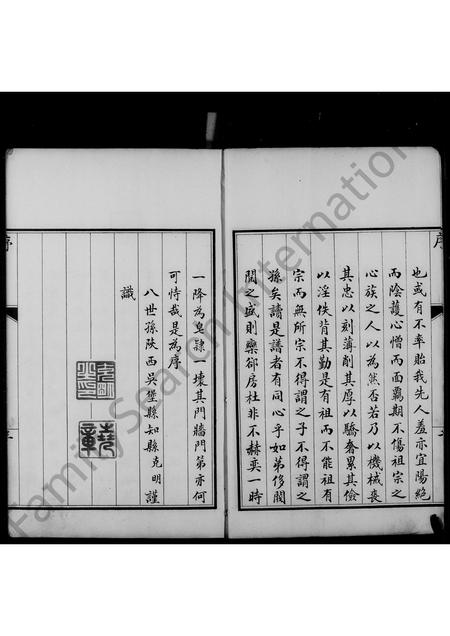 序
也或有不率貽我先人羞亦宜陽絶
而陰護心憎而面覊期不傷祖宗之
心族之人以為然否若乃以機械喪
其忠以刻薄削其厚以驕奢累其儉
以淫佚背其勤是有祖而不能祖有
宗而無所宗不得謂之子不得謂之
孫矣讀是譜者有同心乎如第侈閥
閱之盛則欒郤房杜非不赫奕一時
一降為皂隷一壞其門牆門第亦何
可恃哉是為序
八世孫陝西吳堡縣知縣克明謹
識
序
Family Search International